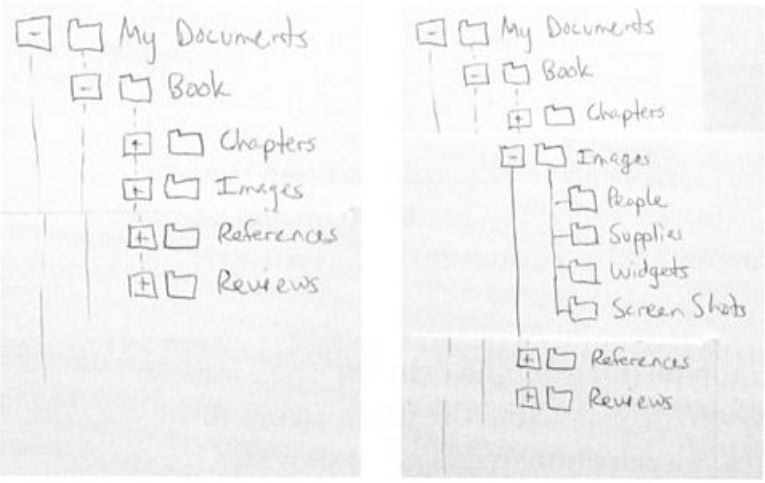 My Documents
Book
Chapters
Images
References
Reviews
My Documents
Book
Chapters
Images
People
Supplies
Widgets
Screen Shots
References
Reviews